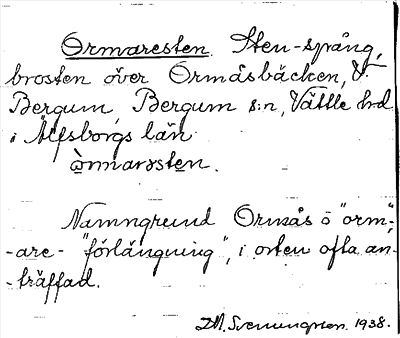 Ormaresten. Sten-spång,
brosten över Ormåsbäcken, V.
Bergum, Bergum s:n, Vättle hd
i Älfsborgs län
ònmarsten.
Namngrund Ormås o "orm",
-are- "förlängning", i orten ofta an-
-träffad.
D.M. Svenungsson. 1938.